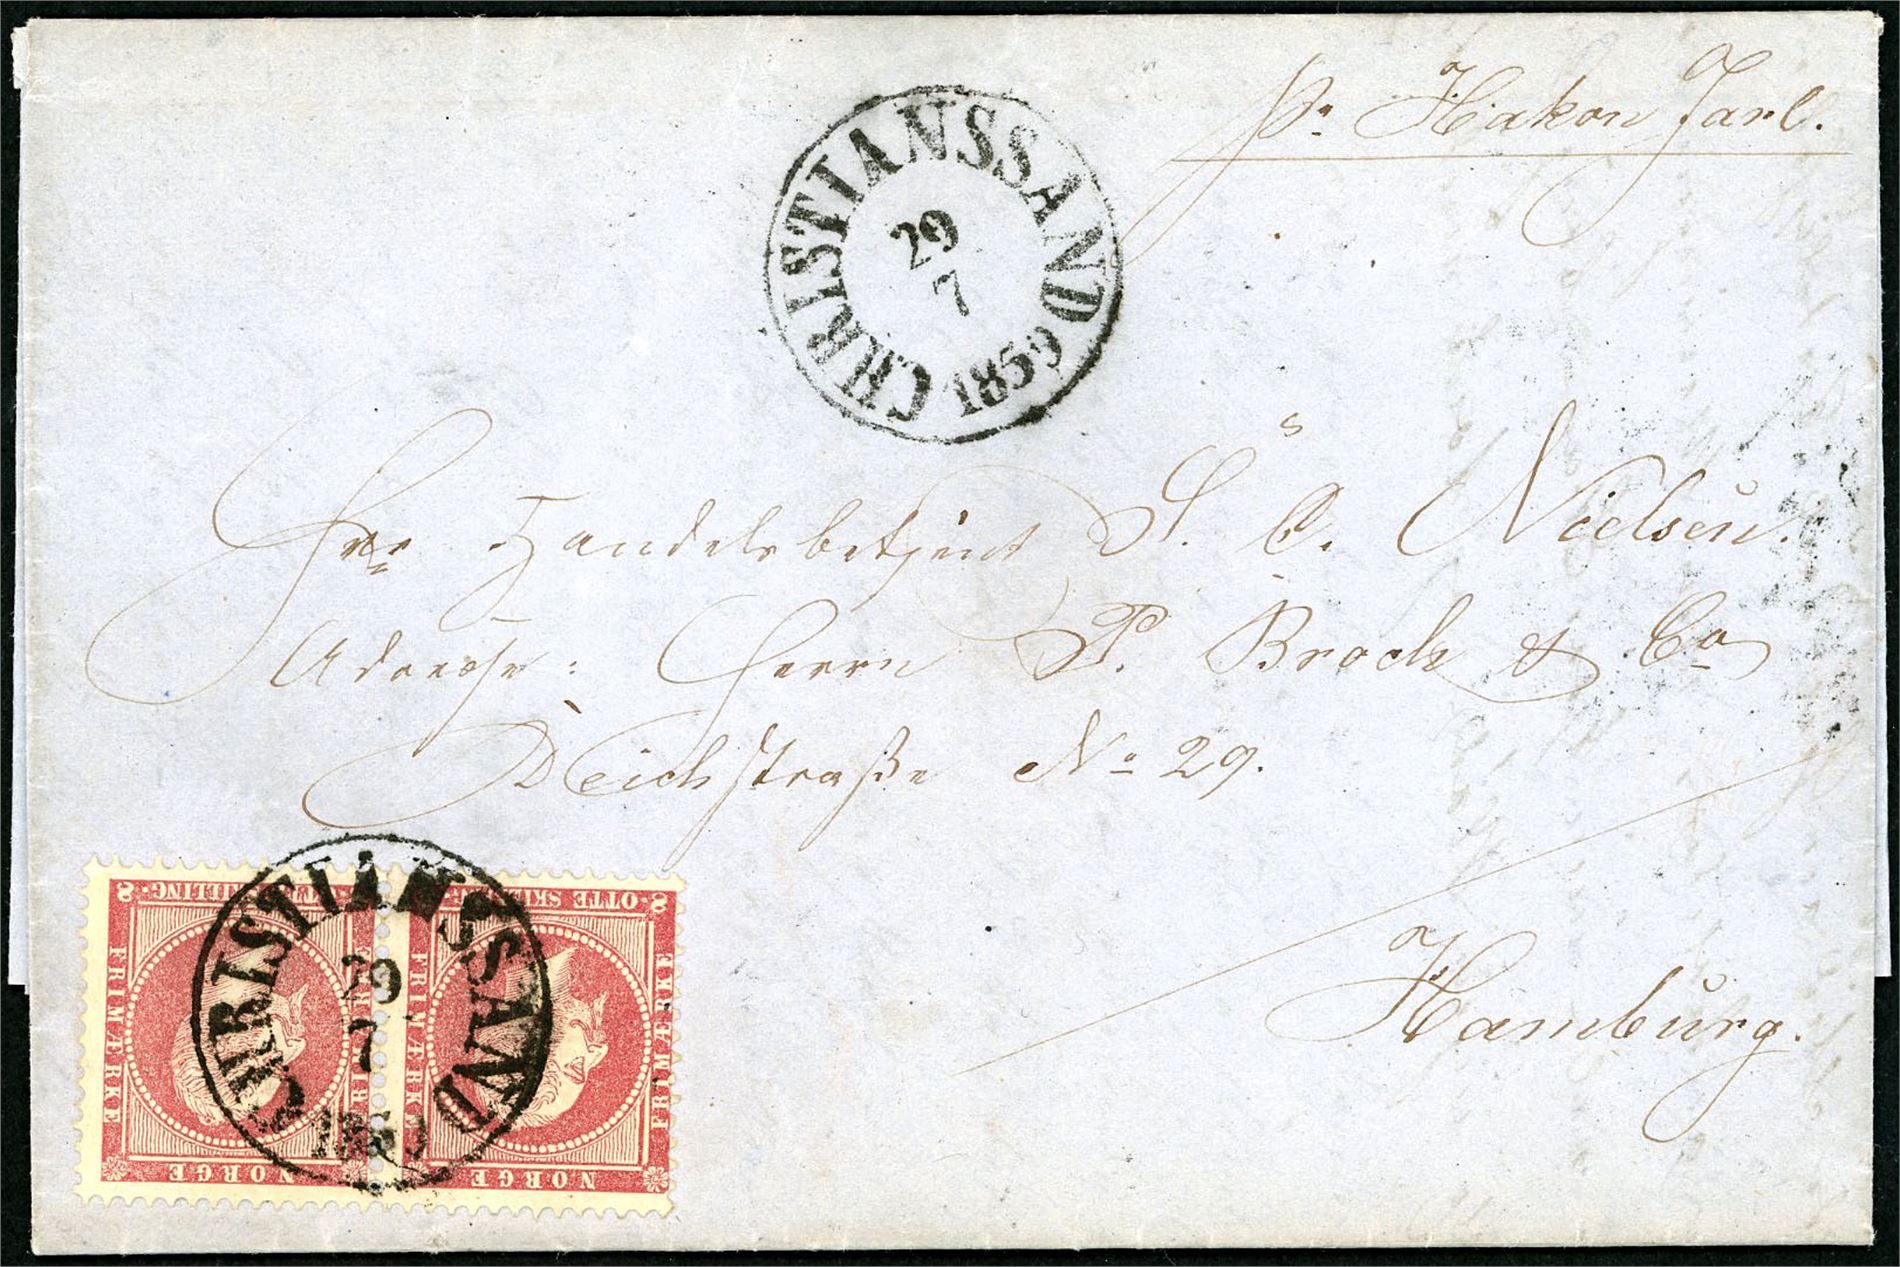 pr Hakon Jarl.
CHRISTIANSSAND
29
7
1859
Herr Handelsbetjent S. C. Nielsen.
Adresse: Herrn P. Broch & Co
Deichstraße No 29.
Hamburg.
8 · OTTE SKILLING · 8
FRIMÆRKE
FRIMÆRKE
NORGE
8 · OTTE SKILLING · 8
FRIMÆRKE
FRIMÆRKE
NORGE
CHRISTIANSSAND
29
7
1859